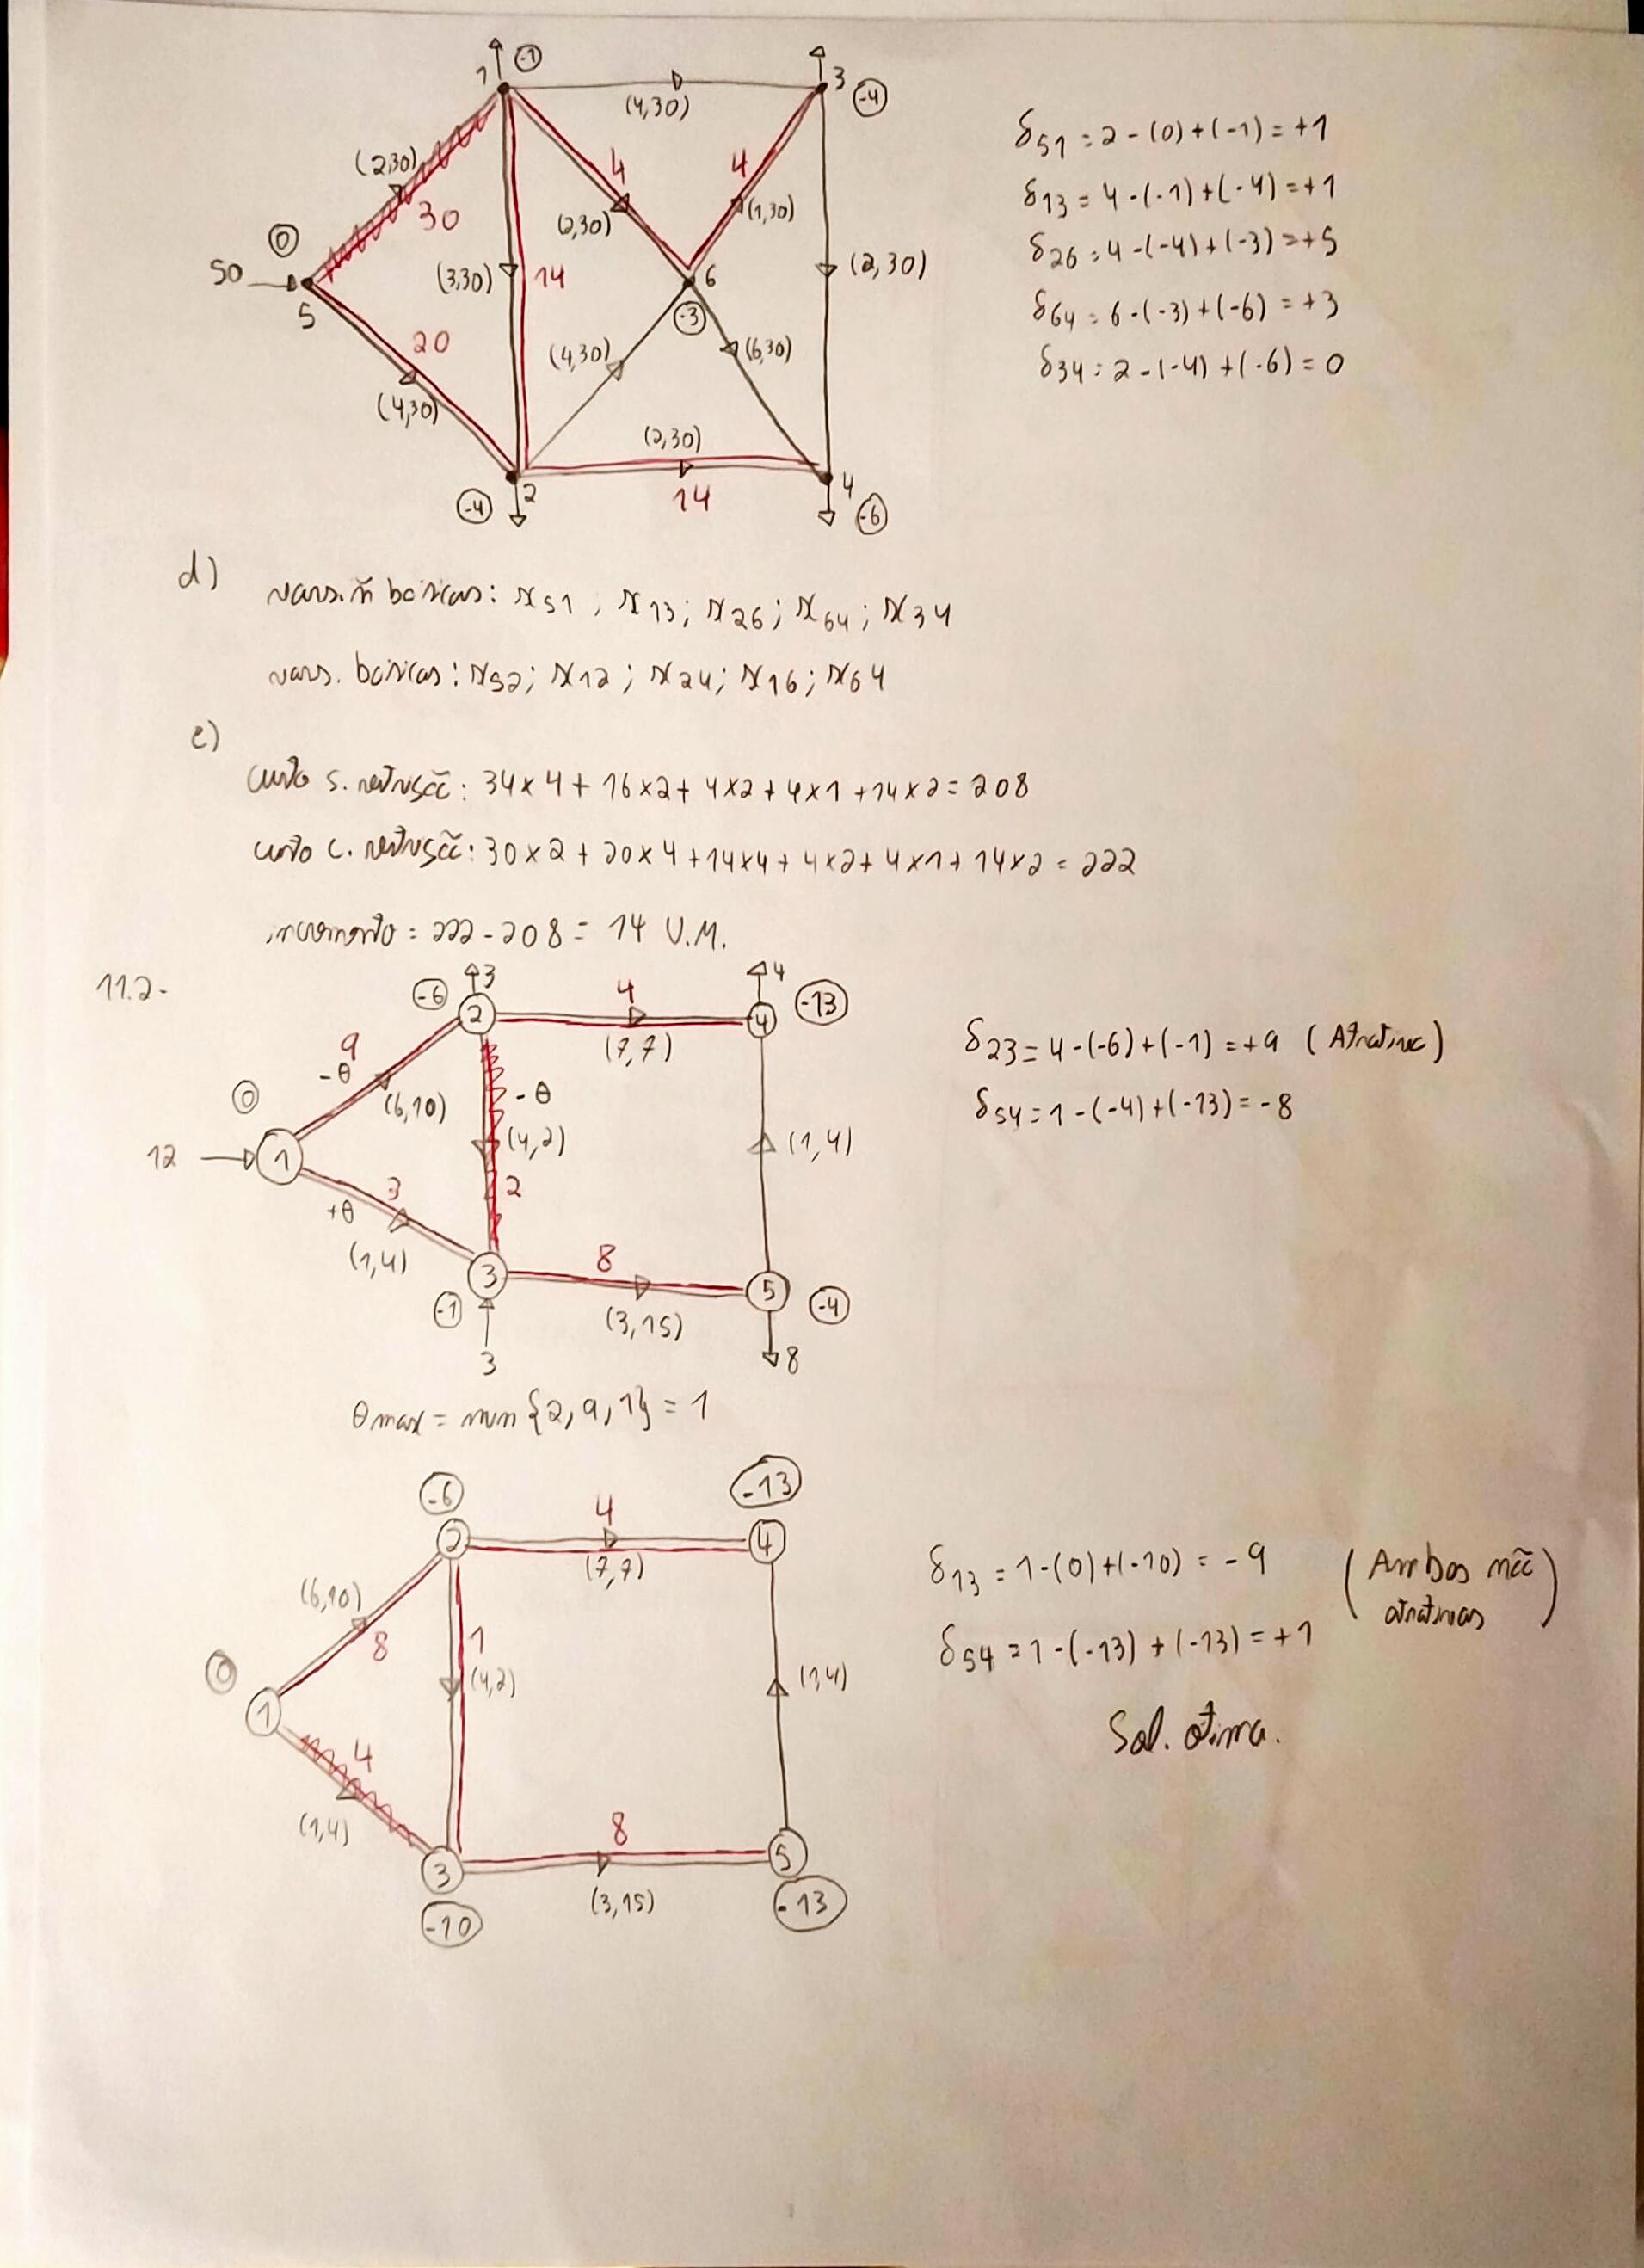 1 (-1)
(4,30)
3 (-4)
(2,30)
30
4
4
(2,30)
(1,30)
(0)
50
5
(3,30)
14
6
(-3)
(2,30)
20
(4,30)
(4,30)
(6,30)
(2,30)
14
(-4) 2
4 (-6)
δ51 = 2 - (0) + (-1) = +1
δ13 = 4 - (-1) + (-4) = +1
δ26 = 4 - (-4) + (-3) = +5
δ64 = 6 - (-3) + (-6) = +3
δ34 = 2 - (-4) + (-6) = 0
d)
vars. ñ básicas: x51, x13; x26; x64; x34
vars. básicas: x52; x12; x24; x16; x64
e)
custo s. restrição: 34x4 + 16x2 + 4x2 + 4x1 + 14x2 = 208
custo c. restrição: 30x2 + 20x4 + 14x4 + 4x2 + 4x1 + 14x2 = 222
incremento = 222 - 208 = 14 U.M.
11.2-
(-6) 3
2
4
(7,7)
4
4 (-13)
9
-θ
(6,10)
(0)
12
1
-θ
(4,2)
2
(1,4)
3
+θ
(1,4)
3
(-1)
3
8
(3,15)
5 (-4)
8
δ23 = 4 - (-6) + (-1) = +9 (Atrativa)
δ54 = 1 - (-4) + (-13) = -8
θmax = min {2, 9, 1} = 1
(-6)
2
4
(7,7)
(-13)
4
(6,10)
8
(0)
1
1
(4,2)
(1,4)
4
(1,4)
3
(-10)
8
(3,15)
5
(-13)
δ13 = 1 - (0) + (-10) = -9
δ54 = 1 - (-13) + (-13) = +1
(Ambas não
atrativas)
Sol. ótima.